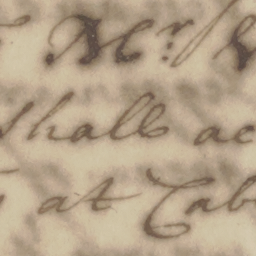 Mr
Shall ac
at Cab